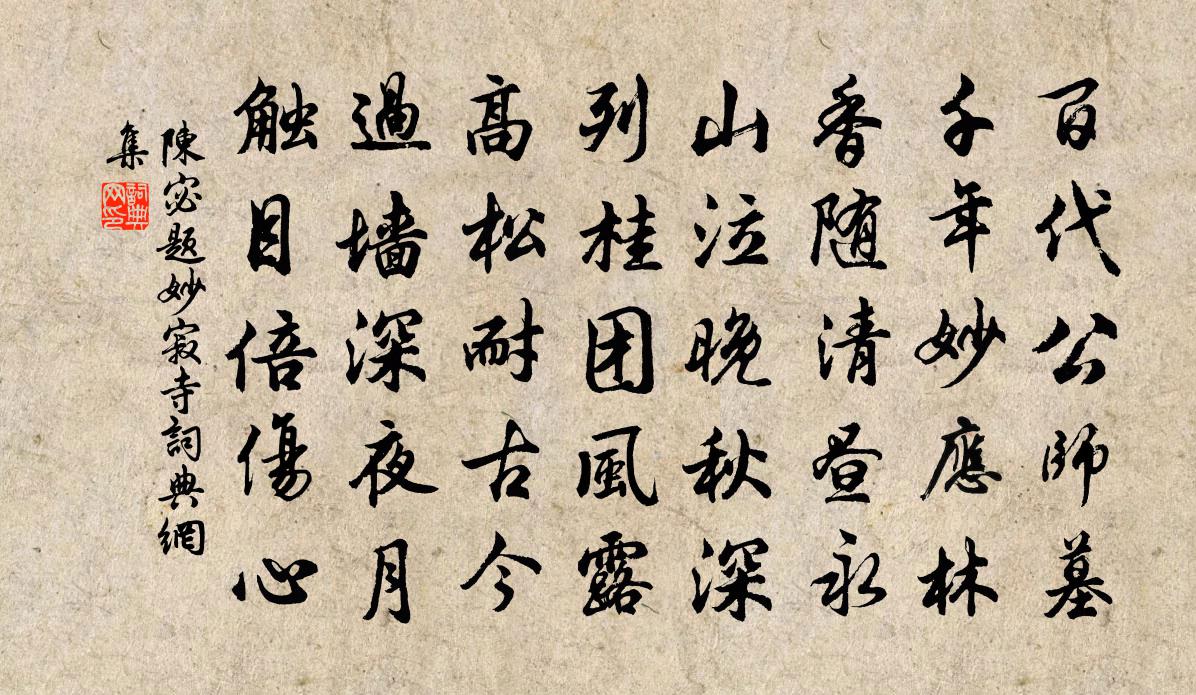 百代公師墓
千年妙應林
香随清昼永
山泣晚秋深
列桂团風露
高松耐古今
過墙深夜月
触目倍傷心
陳宓題妙寂寺詞典網
集
詞典
网印